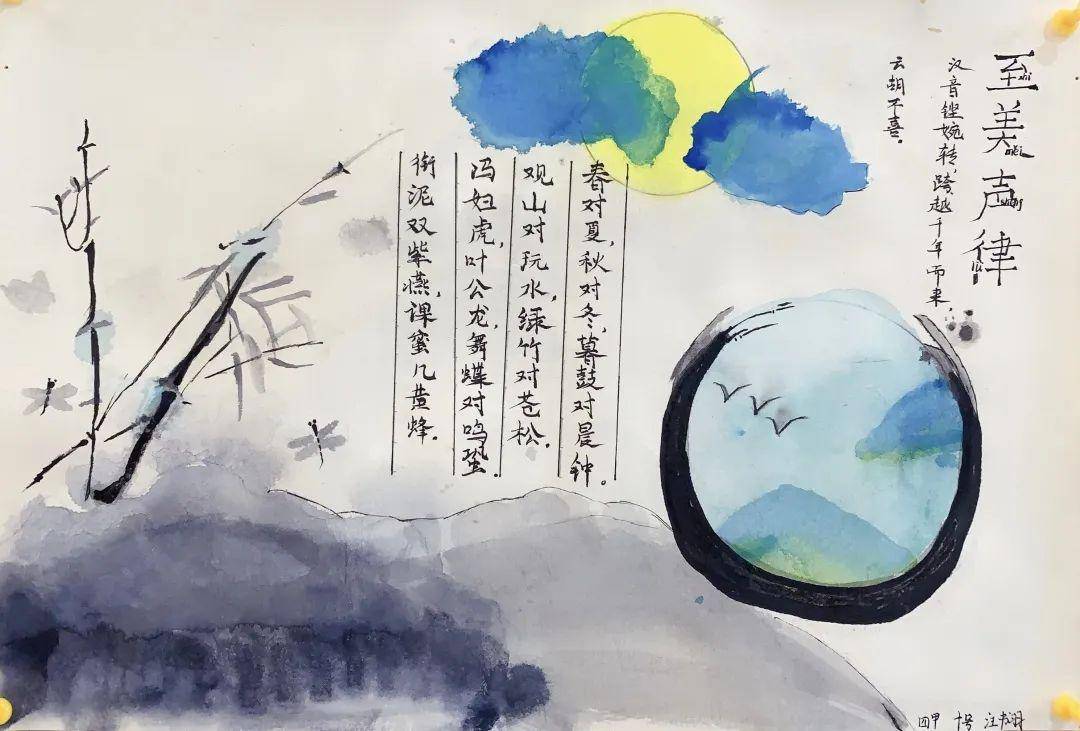 至美声律
汉音铿婉转,跨越千年而来,
云胡不喜。
春对夏,秋对冬,暮鼓对晨钟。
观山对玩水,绿竹对苍松。
冯妇虎,叶公龙,舞蝶对鸣蛩。
衔泥双紫燕,课蜜几黄蜂。
四甲 十号 汪